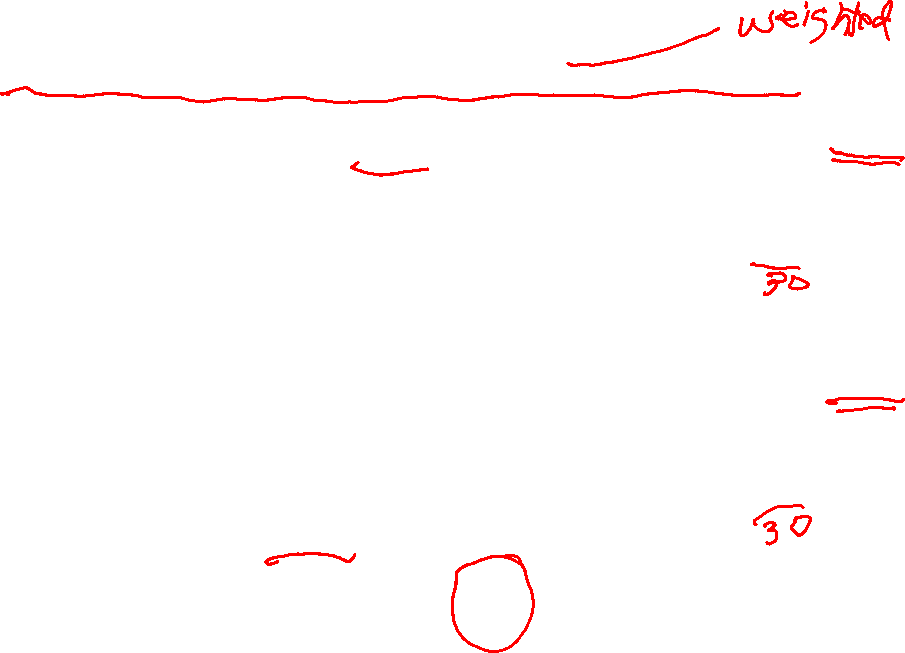 weighted
30
30